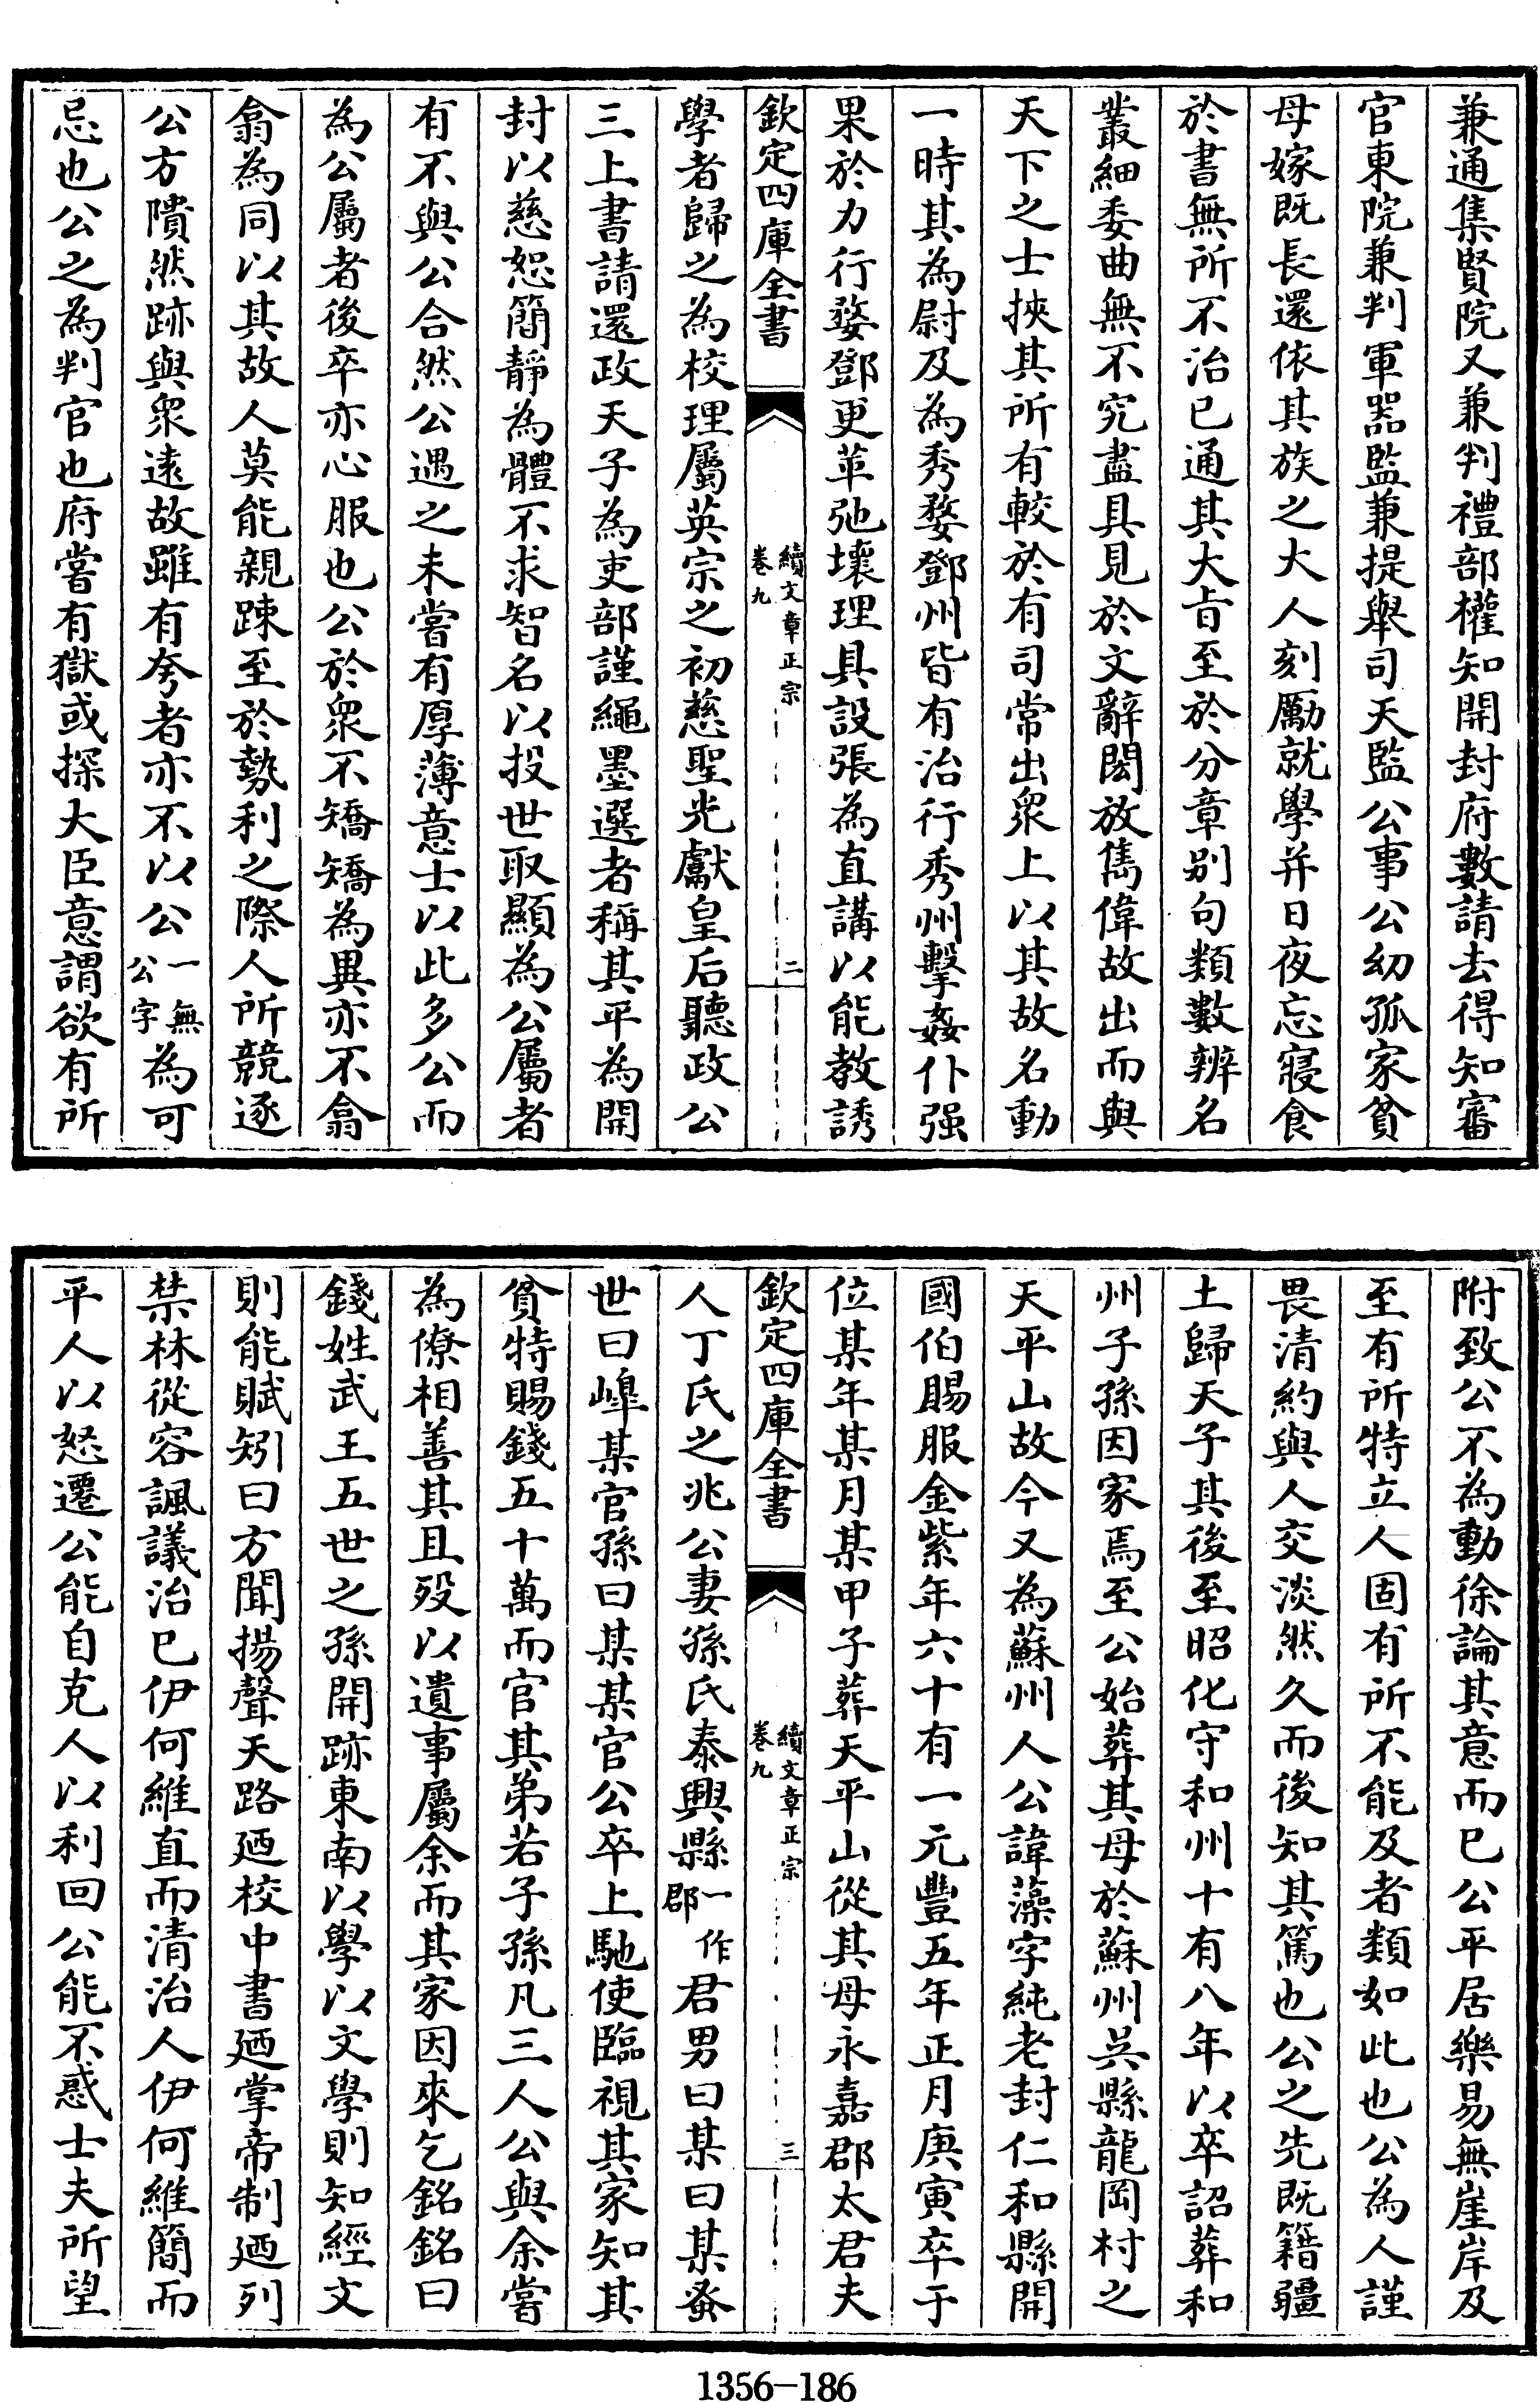 兼通集賢院又兼判禮部權知開封府數請去得知審
官東院兼判軍器監兼提舉司天監公事公幼孤家貧
母嫁既長還依其族之大人刻勵就學并日夜忘寢食
於書無所不治已通其大㫖至於分章别句類數辨名
叢細委曲無不究盡具見於文辭閎放雋偉故出而與
天下之士挾其所有較於有司常出衆上以其故名動
一時其為尉及為秀婺鄧州皆有治行秀州擊姦仆强
果於力行婺鄧更革弛壞理具設張為直講以能教誘
欽定四庫全書
續文章正宗
卷九
二
學者歸之為校理屬英宗之初慈聖光獻皇后聽政公
三上書請還政天子為吏部謹繩墨選者稱其平為開
封以慈恕簡靜為體不求智名以投世取顯為公屬者
有不與公合然公遇之未嘗有厚薄意士以此多公而
為公屬者後卒亦心服也公於衆不矯矯為異亦不翕
翕為同以其故人莫能親踈至於勢利之際人所競逐
公方隤然跡與衆逺故雖有夸者亦不以公一無公字為可
忌也公之為判官也府嘗有獄或探大臣意謂欲有所
附致公不為動徐論其意而已公平居樂易無崖岸及
至有所特立人固有所不能及者類如此也公為人謹
畏清約與人交淡然久而後知其篤也公之先既籍疆
土歸天子其後至昭化守和州十有八年以卒詔葬和
州子孫因家焉至公始葬其母於蘇州吳縣龍岡村之
天平山故今又為蘇州人公諱藻字純老封仁和縣開
國伯賜服金紫年六十有一元豐五年正月庚寅卒于
位某年某月某甲子葬天平山從其母永嘉郡太君夫
欽定四庫全書
續文章正宗
卷九
三
人丁氏之兆公妻孫氏泰興縣一作郡君男曰某曰某蚤
世曰嶂某官孫曰某某官公卒上馳使臨視其家知其
貧特賜錢五十萬而官其弟若子孫凡三人公與余嘗
為僚相善其且歿以遺事屬余而其家因來乞銘銘曰
錢姓武王五世之孫開跡東南以學以文學則知經文
則能賦矧曰方聞揚聲天路廼校中書廼掌帝制廼列
禁林從容諷議治已伊何維直而清治人伊何維簡而
平人以怒遷公能自克人以利回公能不惑士夫所望
1356-186